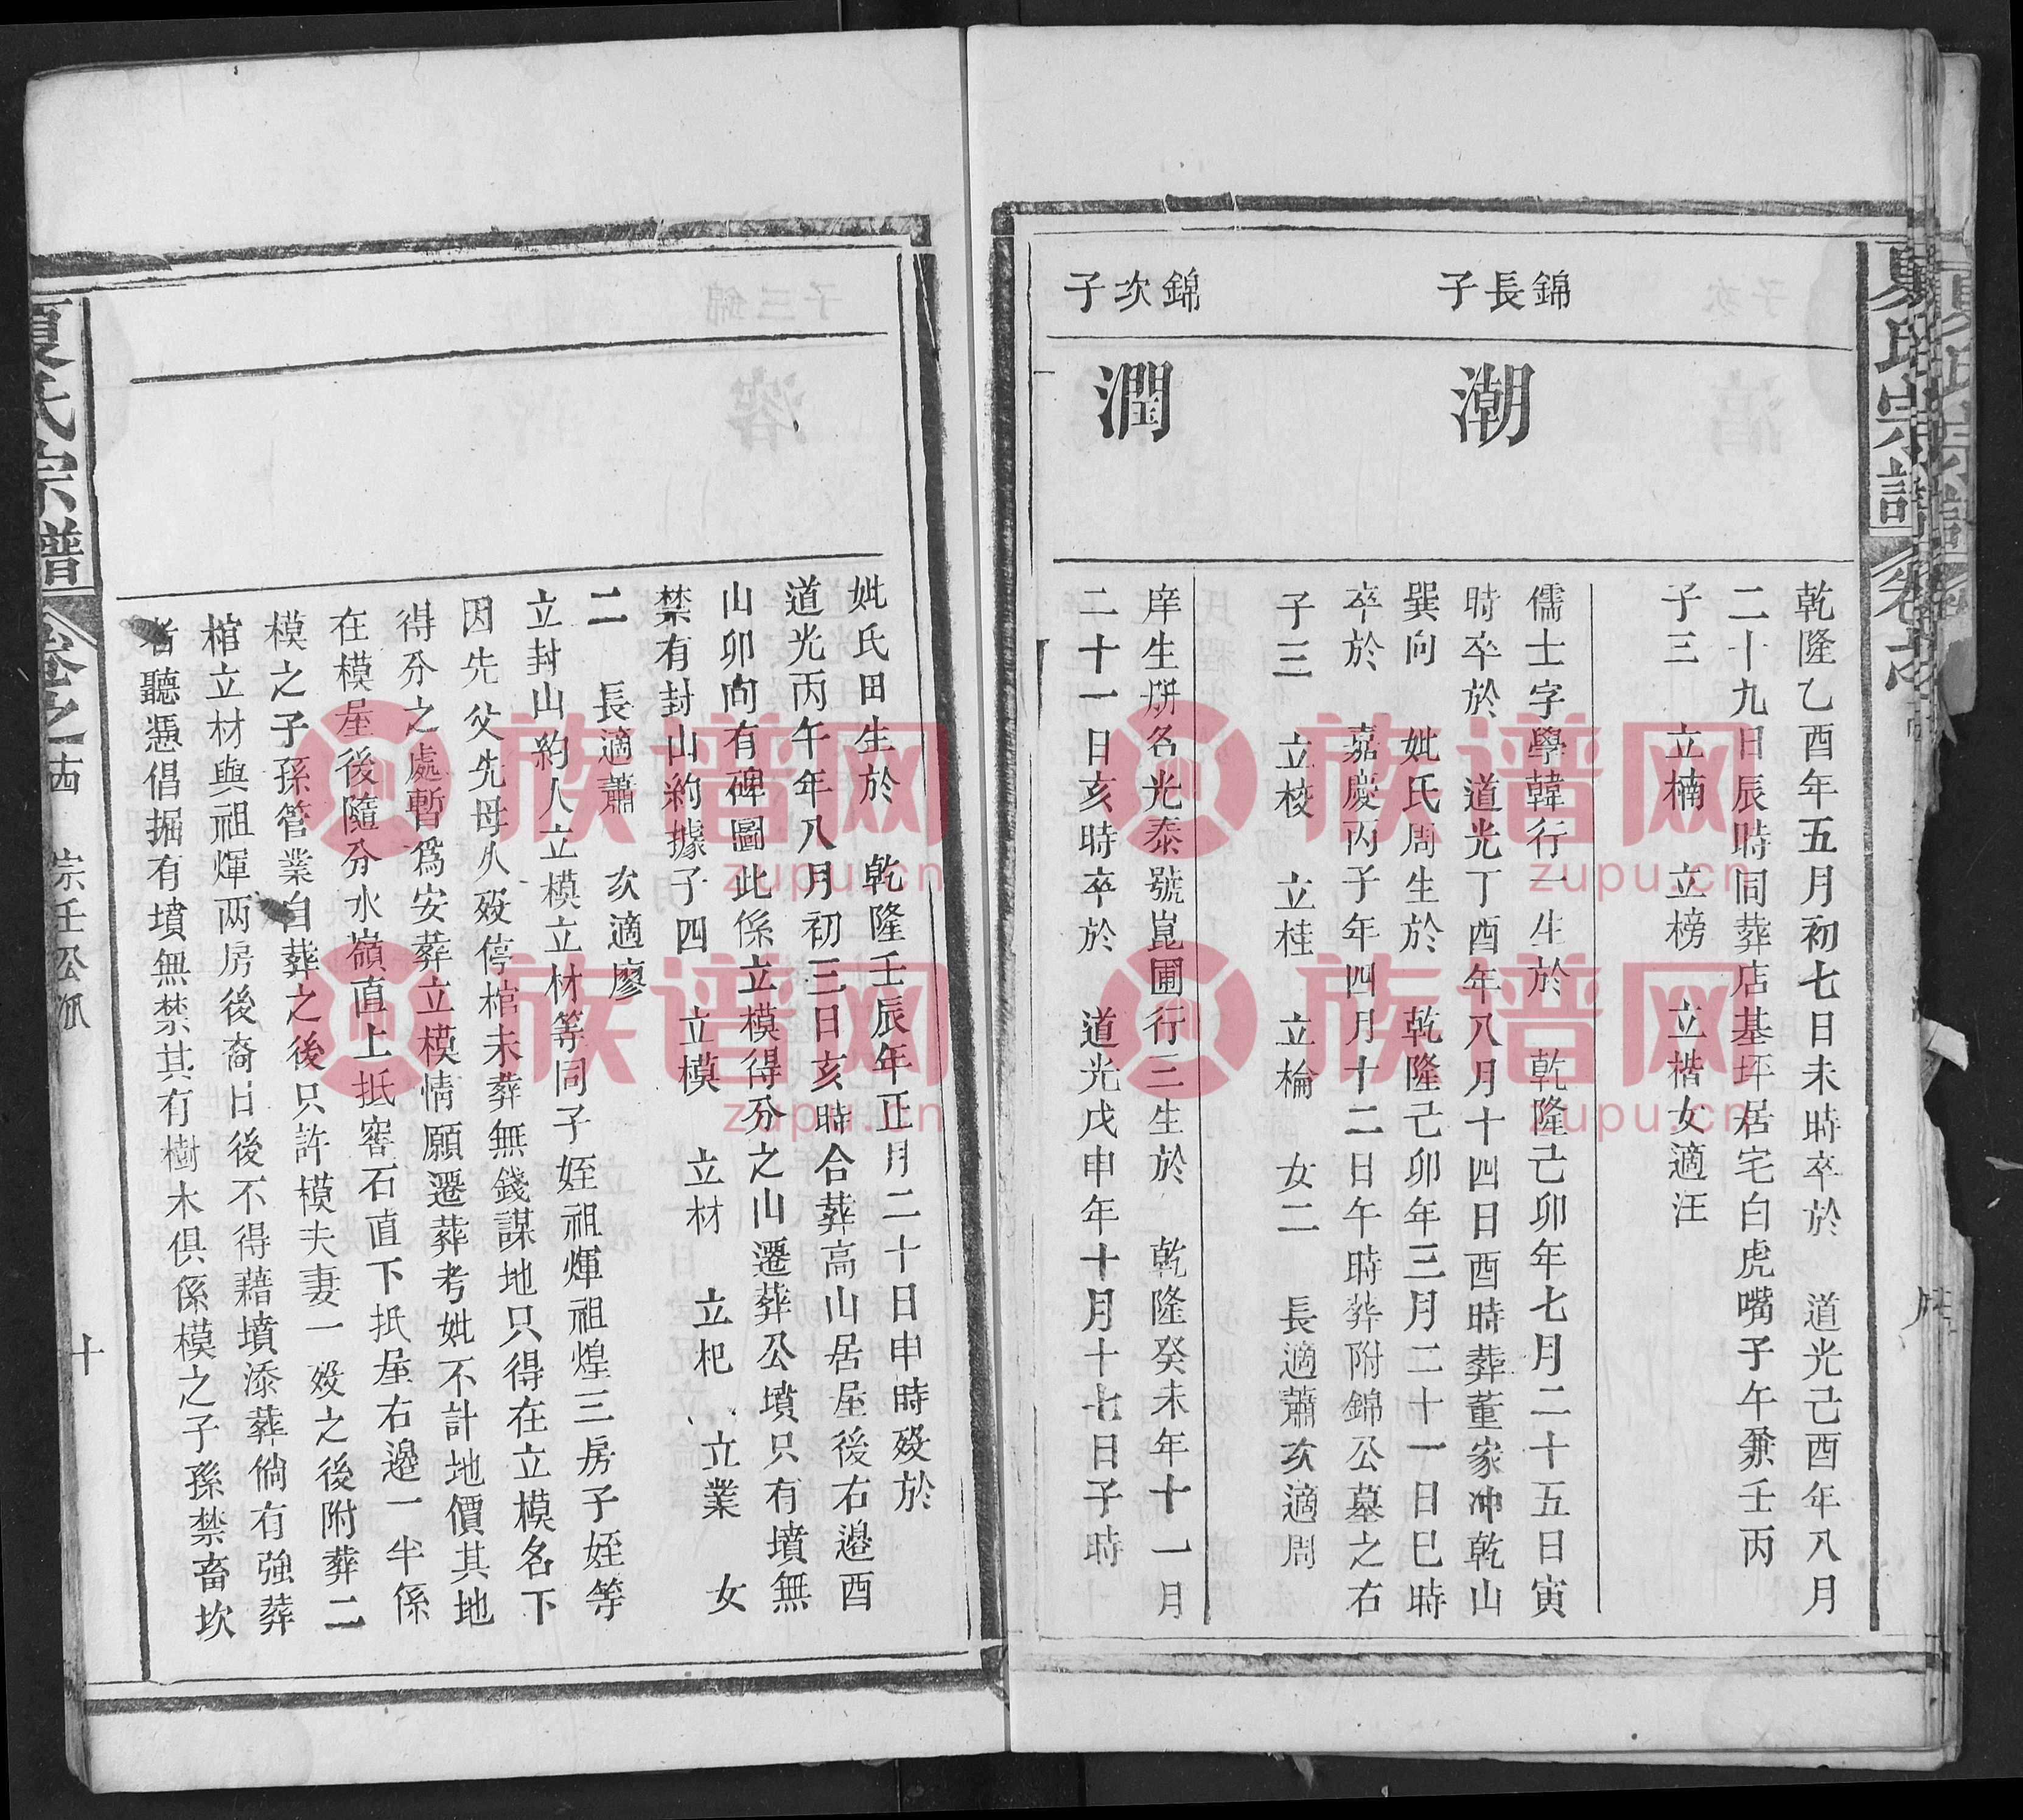 夏氏宗譜
乾隆乙酉年五月初七日未時卒於 道光己酉年八月
二十九日辰時同葬店基坪居宅白虎嘴子午兼壬丙
子三 立楠 立榜 立楷女適汪
錦長子
潮
儒士字學韓行一生於 乾隆己卯年七月二十五日寅
時卒於 道光丁酉年八月十四日酉時葬董家冲乾山
巽向 妣氏周生於 乾隆己卯年三月二十一日巳時
卒於 嘉慶丙子年四月十二日午時葬附錦公墓之右
子三 立梭 立桂 立棆 女二 長適蕭次適周
錦次子
潤
庠生册名光泰號崑圃行三生於 乾隆癸未年十一月
二十一日亥時卒於 道光戊申年十月十七日子時
妣氏田生於 乾隆壬辰年正月二十日申時殁於
道光丙午年八月初三日亥時合葬高山居屋後右邊酉
山卯向有碑圖此係立模得分之山遷葬公墳只有墳無
禁有封山約據子四 立模 立材 立杞 立業 女
二 長適蕭 次適廖
立封山約人立模立材等同子姪祖煇祖煌三房子姪等
因先父先母久殁停棺未葬無錢謀地只得在立模名下
得分之處暫爲安葬立模情願遷葬考妣不計地價其地
在模屋後隨分水嶺直上抵窖石直下抵屋右邊一半係
模之子孫管業自葬之後只許模夫妻一殁之後附葬二
棺立材與祖煇两房後裔日後不得藉墳添葬倘有強葬
者聽憑倡掘有墳無禁其有樹木俱係模之子孫禁畜坎
夏氏宗譜
卷之十四 宗壬公派
十
族谱网
zupu.cn
族谱网
zupu.cn
族谱网
zupu.cn
族谱网
zupu.cn